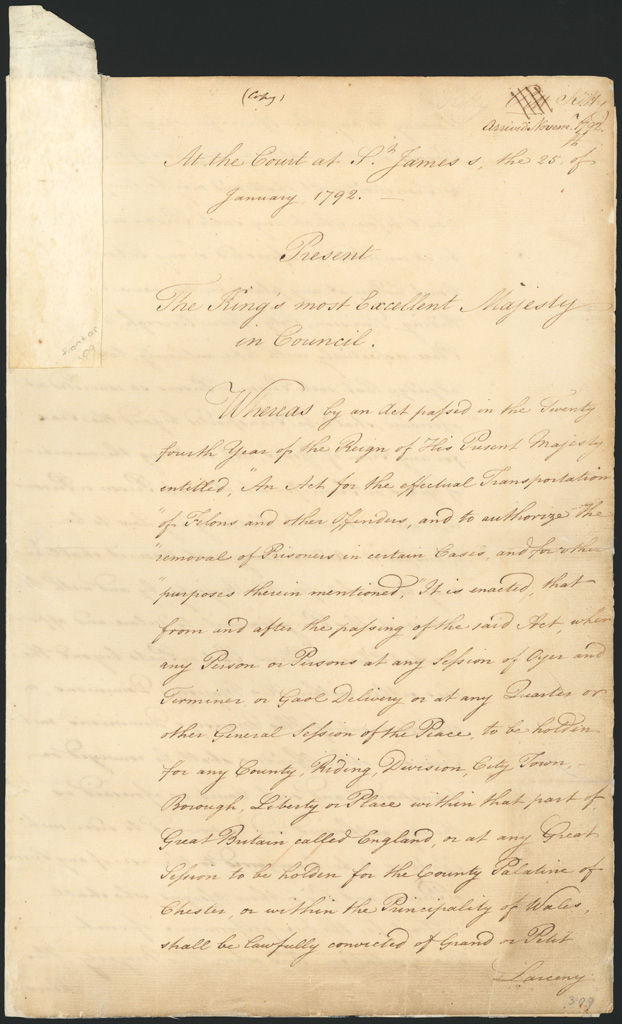 (Copy)
arrived Novem.r 1792.
At the Court at S.t James's, the 25, of
January 1792. —
Present
The King's most Excellent Majesty
in Council.
Whereas by an Act passed in the Twenty
fourth Year of the Reign of His Present Majesty
entitled, "An Act for the effectual Transportation
"of Felons and other Offenders, and to authorize the
"removal of Prisoners in certain Cases, and for other
"purposes therein mentioned, It is enacted, that
from and after the passing of the said Act, when
any Person or Persons at any Session of Oyer and
Terminer or Gaol Delivery or at any Quarter or
other General Session of the Peace, to be holden
for any County, Riding, Division, City Town, –
Borough, Liberty or Place within that part of
Great Britain called England, or at any Great
Session to be holden for the County Palatine of
Chester, or within the Principality of Wales,
shall be lawfully convicted of Grand or Petit
Larceny
309